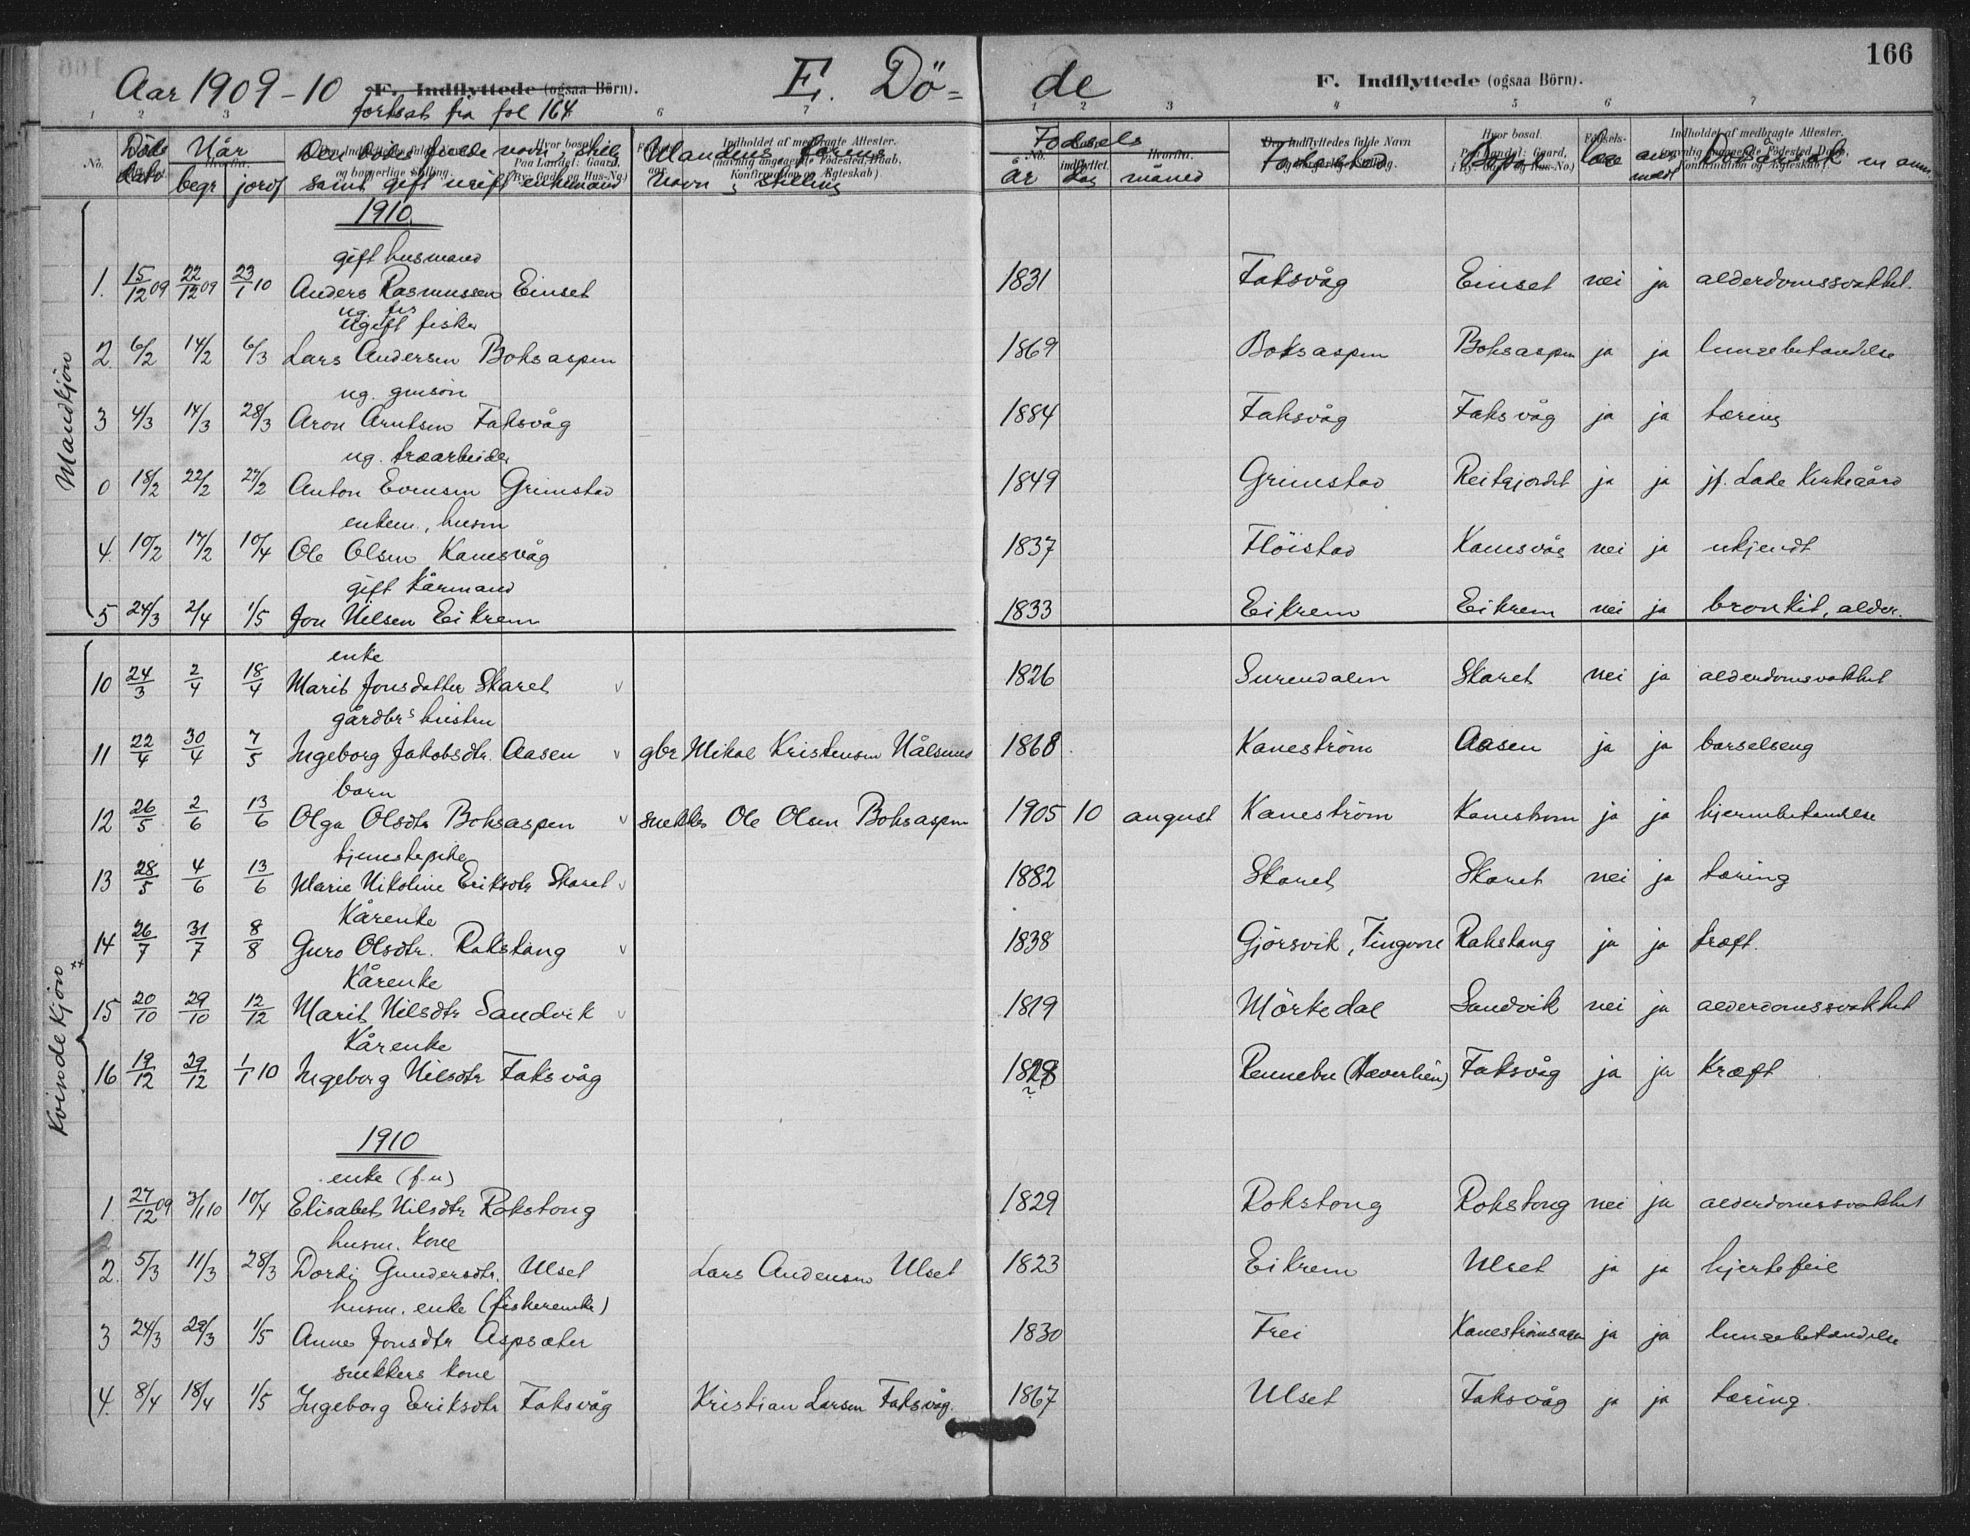 166
Aar 1909-10 F. Indflyttede (ogsaa Börn). E. Dö= de F. Indflyttede (ogsaa Börn).
fortsat fra fol 164
1 2 3 6 7 1 2 3 4 5 6 7
No. Döds dato Når begr jordf Den dödes fulde navn, samt gift ugift enkemand Mandens navn stilling Födsels år dag måned Födested Bopæl
Mandkjön
1910
gift husmand
1. 15/12 09 22/12 09 23/1 10 Anders Rasmussen Einset 1831 Faksvåg Einset nei ja alderdomssvakhet.
ug. fis
ugift fisker
2. 6/2 14/2 6/3 Lars Andersen Boksaspen 1869 Boksaspen Boksaspen ja ja lungebetændelse
ug. gmsön
3 4/3 14/3 28/3 Aron Arntsen Faksvåg 1884 Faksvåg Faksvåg ja ja tæring
ug. træarbeider
0 18/2 22/2 27/2 Anton Evensen Grimstad 1849 Grimstad Reitgjerdet ja ja jf. Lade Kirkegård
enkem., husm
4. 10/2 17/2 10/4 Ole Olsen Kanesvåg 1837 Flöistad Kanesvåg nei ja ukjendt
gift Kårmand
5 24/3 2/4 1/5 Jon Nilsen Eikrem 1833 Eikrem Eikrem nei ja bronkit, alder.
Kvindekjön
enke
10 24/3 2/4 18/4 Marit Jonsdatter Skaret v 1826 Surendalen Skaret nei ja alderdomsvakhet
gårdbrs hustru
11 22/4 30/4 7/5 Ingeborg Jakobsdtr. Aasen v gbr Mikal Kristensen Nålsund 1868 Kaneström Aasen ja ja barselseng
barn
12 26/5 2/6 13/6 Olga Olsdtr Boksaspen v snekker Ole Olsen Boksaspen 1905 10 august Kaneström Kanestrom ja ja hjernebetændelse
tjenestepike
13 28/5 4/6 13/6 Marie Nikoline Eriksdtr Skaret v 1882 Skaret Skaret nei ja tæring
Kårenke
14 26/7 31/7 8/8 Guro Olsdtr. Rokstang v 1838 Gjörsvik, Tingvoll Rakstang ja ja kræft.
Kårenke
15 20/10 29/10 12/12 Marit Nilsdtr Sandvik v 1819 Mörkedal Sandvik nei ja alderdomssvakhet
Kårenke
16 19/12 29/12 1/1 10 Ingeborg Nilsdtr Faksvåg 1828 Rennebu (Hæverlien) Faksvåg ja ja Kræft
1910
enke (f.u)
1. 27/12 09 3/1 10 10/4 Elisabet Nilsdtr Rokstong 1829 Rokstong Rokstong nei ja alderdomssvakhet
husm. Kone
2. 5/3 11/3 28/3 Dordi Gundersdtr. Ulset Lars Andersen Ulset 1823 Eikrem Ulset ja ja hjertefeil
husm. enke (fiskerenke)
3 24/3 29/3 1/5 Anne Jonsdtr Aspsæter 1830 Frei ja ja lungebetændelse
snekkers kone
4. 8/4 18/4 1/5 Ingeborg Eriksdtr Faksvåg Kristian Larsen Faksvåg. 1867 Ulset Faksvåg ja ja tæring.